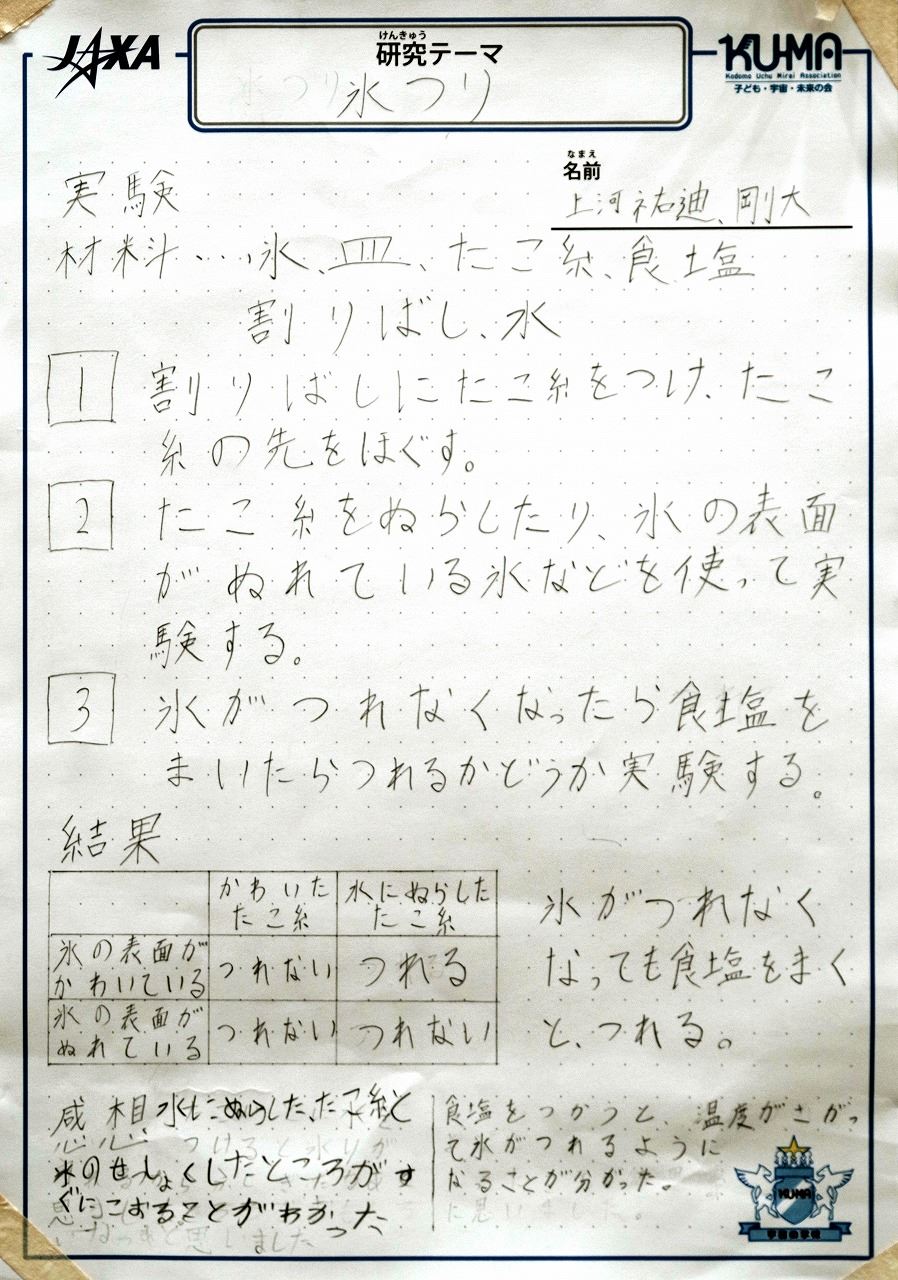 JAXA
けんきゅう
研究テーマ
KUMA
Kodomo Uchu Mirai Association
子ども・宇宙・未来の会
氷つり
なまえ
名前
上河祐迪、剛大
実験
材料…氷、皿、たこ糸、食塩
割りばし、水
1 割りばしにたこ糸をつけ、たこ
糸の先をほぐす。
2 たこ糸をぬらしたり、氷の表面
がぬれている氷などを使って実
験する。
3 氷がつれなくなったら食塩を
まいたらつれるかどうか実験する。
結果
かわいた
たこ糸
水にぬらした
たこ糸
氷の表面が
かわいている
つれない
つれる
氷の表面が
ぬれている
つれない
つれない
氷がつれなく
なっても食塩をまく
と、つれる。
感想 水にぬらした、たこ糸と
氷のせしょくしたところがす
ぐにこおることがわかった
食塩をつかうと、温度がさがっ
て氷がつれるように
なることが分かった。
KUMA
宇宙の学校